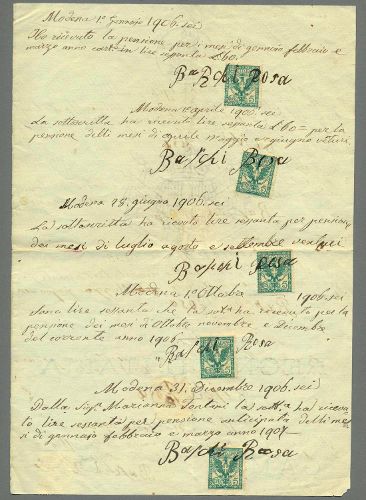 Modena 1º Gennaio 1906.sei
Ho ricevuto la pensione per i mesi di gennaio febbraio e
marzo anno in lire £60.
Baschi Rosa
Modena aprile 1906.sei
La sottoscritta ha ricevuto lire sessanta £60= per la
pensione delli mesi di aprile maggio e giugno
Baschi Rosa
Modena 28 giugno 1906.sei
La sottoscritta ha ricevuto lire sessanta per pensione
dei mesi di luglio agosto e settembre
Baschi Rosa
Modena 1º Ottobre 1906.sei
sono lire sessanta che la sotta ha ricevuto per la
pensione dei mesi di Ottobre novembre e Dicembre
del corrente anno 1906
Baschi Rosa
Modena 31. Dicembre 1906.sei
Dalla Sigra Marianna la sotta ha ricevu-
to lire sessanta per pensione anticipata delli me-
si di gennaio febbraio e marzo anno 1907
Baschi Rosa